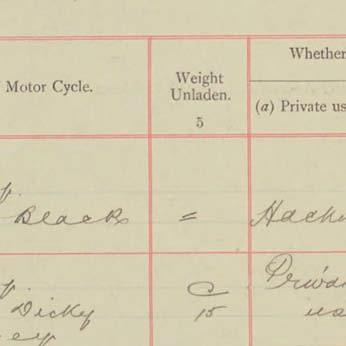 Whether
Motor Cycle.
Weight
Unladen.
5
(a) Private us
p.
Black
=
Hackn
p.
Dicky
ey
C
15
Priva
us